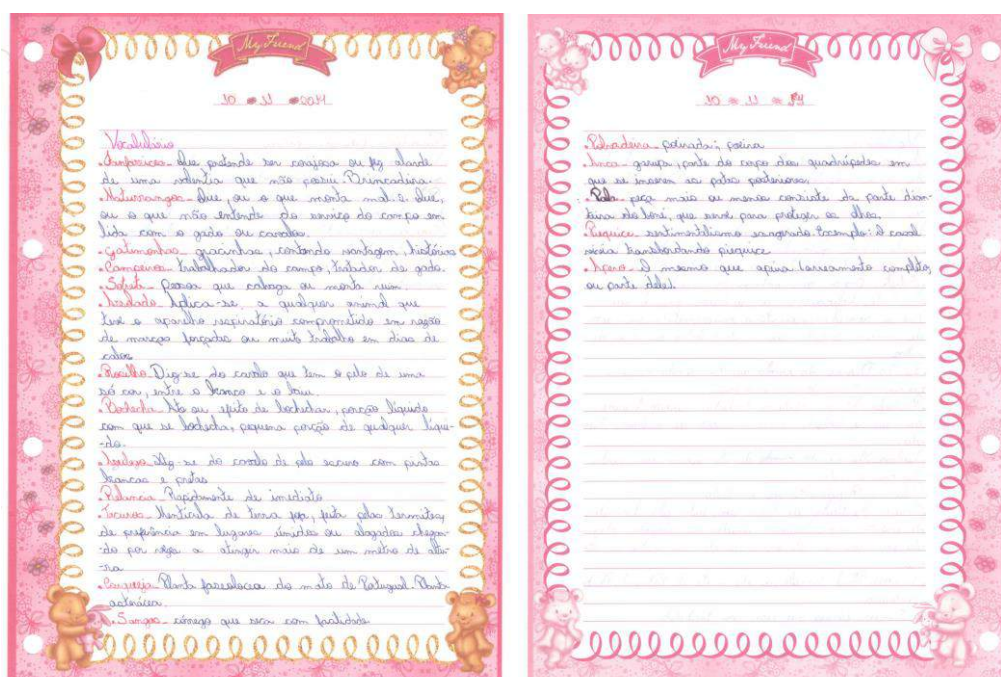 My Friend
10 11 2014
Vocabulário
. Que pretende ser corajosa ou faz alarde
de uma valentia que não possui. Brincadeira.
. Maturrangos - Que, ou o que monta mal. 2. Que,
ou o que não entende do serviço do campo em
lida com o gado ou cavalos.
. Gatimonhas - gracinhas, contando vantagem, histórias
. Campeiros - trabalhador do campo, tratador de gado.
. Sofreta - pessoa que cavalga ou monta ruim.
. Aplica-se a qualquer animal que
teve o aparelho respiratório comprometido em razão
de marchas forçadas ou muito trabalho em dias de
calor
. Rosilho - Diz-se do cavalo que tem o pelo de uma
só cor, entre o branco e o
. Bochecha - Ato ou efeito de bochechar, porção líquida
com que se bochecha, pequena porção de qualquer líqui-
-do.
. do cavalo de pelo escuro com pintas
brancas e pretas
. Relancia - Rapidamente de imediato
. Tacuras - de terra feita pelas termites,
de preferência em lugares úmidos ou alagados chegan-
-do por vezes a atingir mais de um metro de altu-
-ra
. Planta do mato de Portugal. Planta
. Sangas - córrego que seca com facilidade
My Friend
10 11 14
. Polvadeira - poeirada; poeira
. Anca - garupa, parte do corpo dos quadrúpedes em
que se inserem as patas posteriores.
. Pala - peça mais ou menos da parte dian-
teira do boné, que serve para proteger os olhos.
. Pieguice - sentimentalismo exagerado. Exemplo: O casal
transbordando pieguice
. Apero - O mesmo que apeiro (arreamento completo,
ou parte dele).